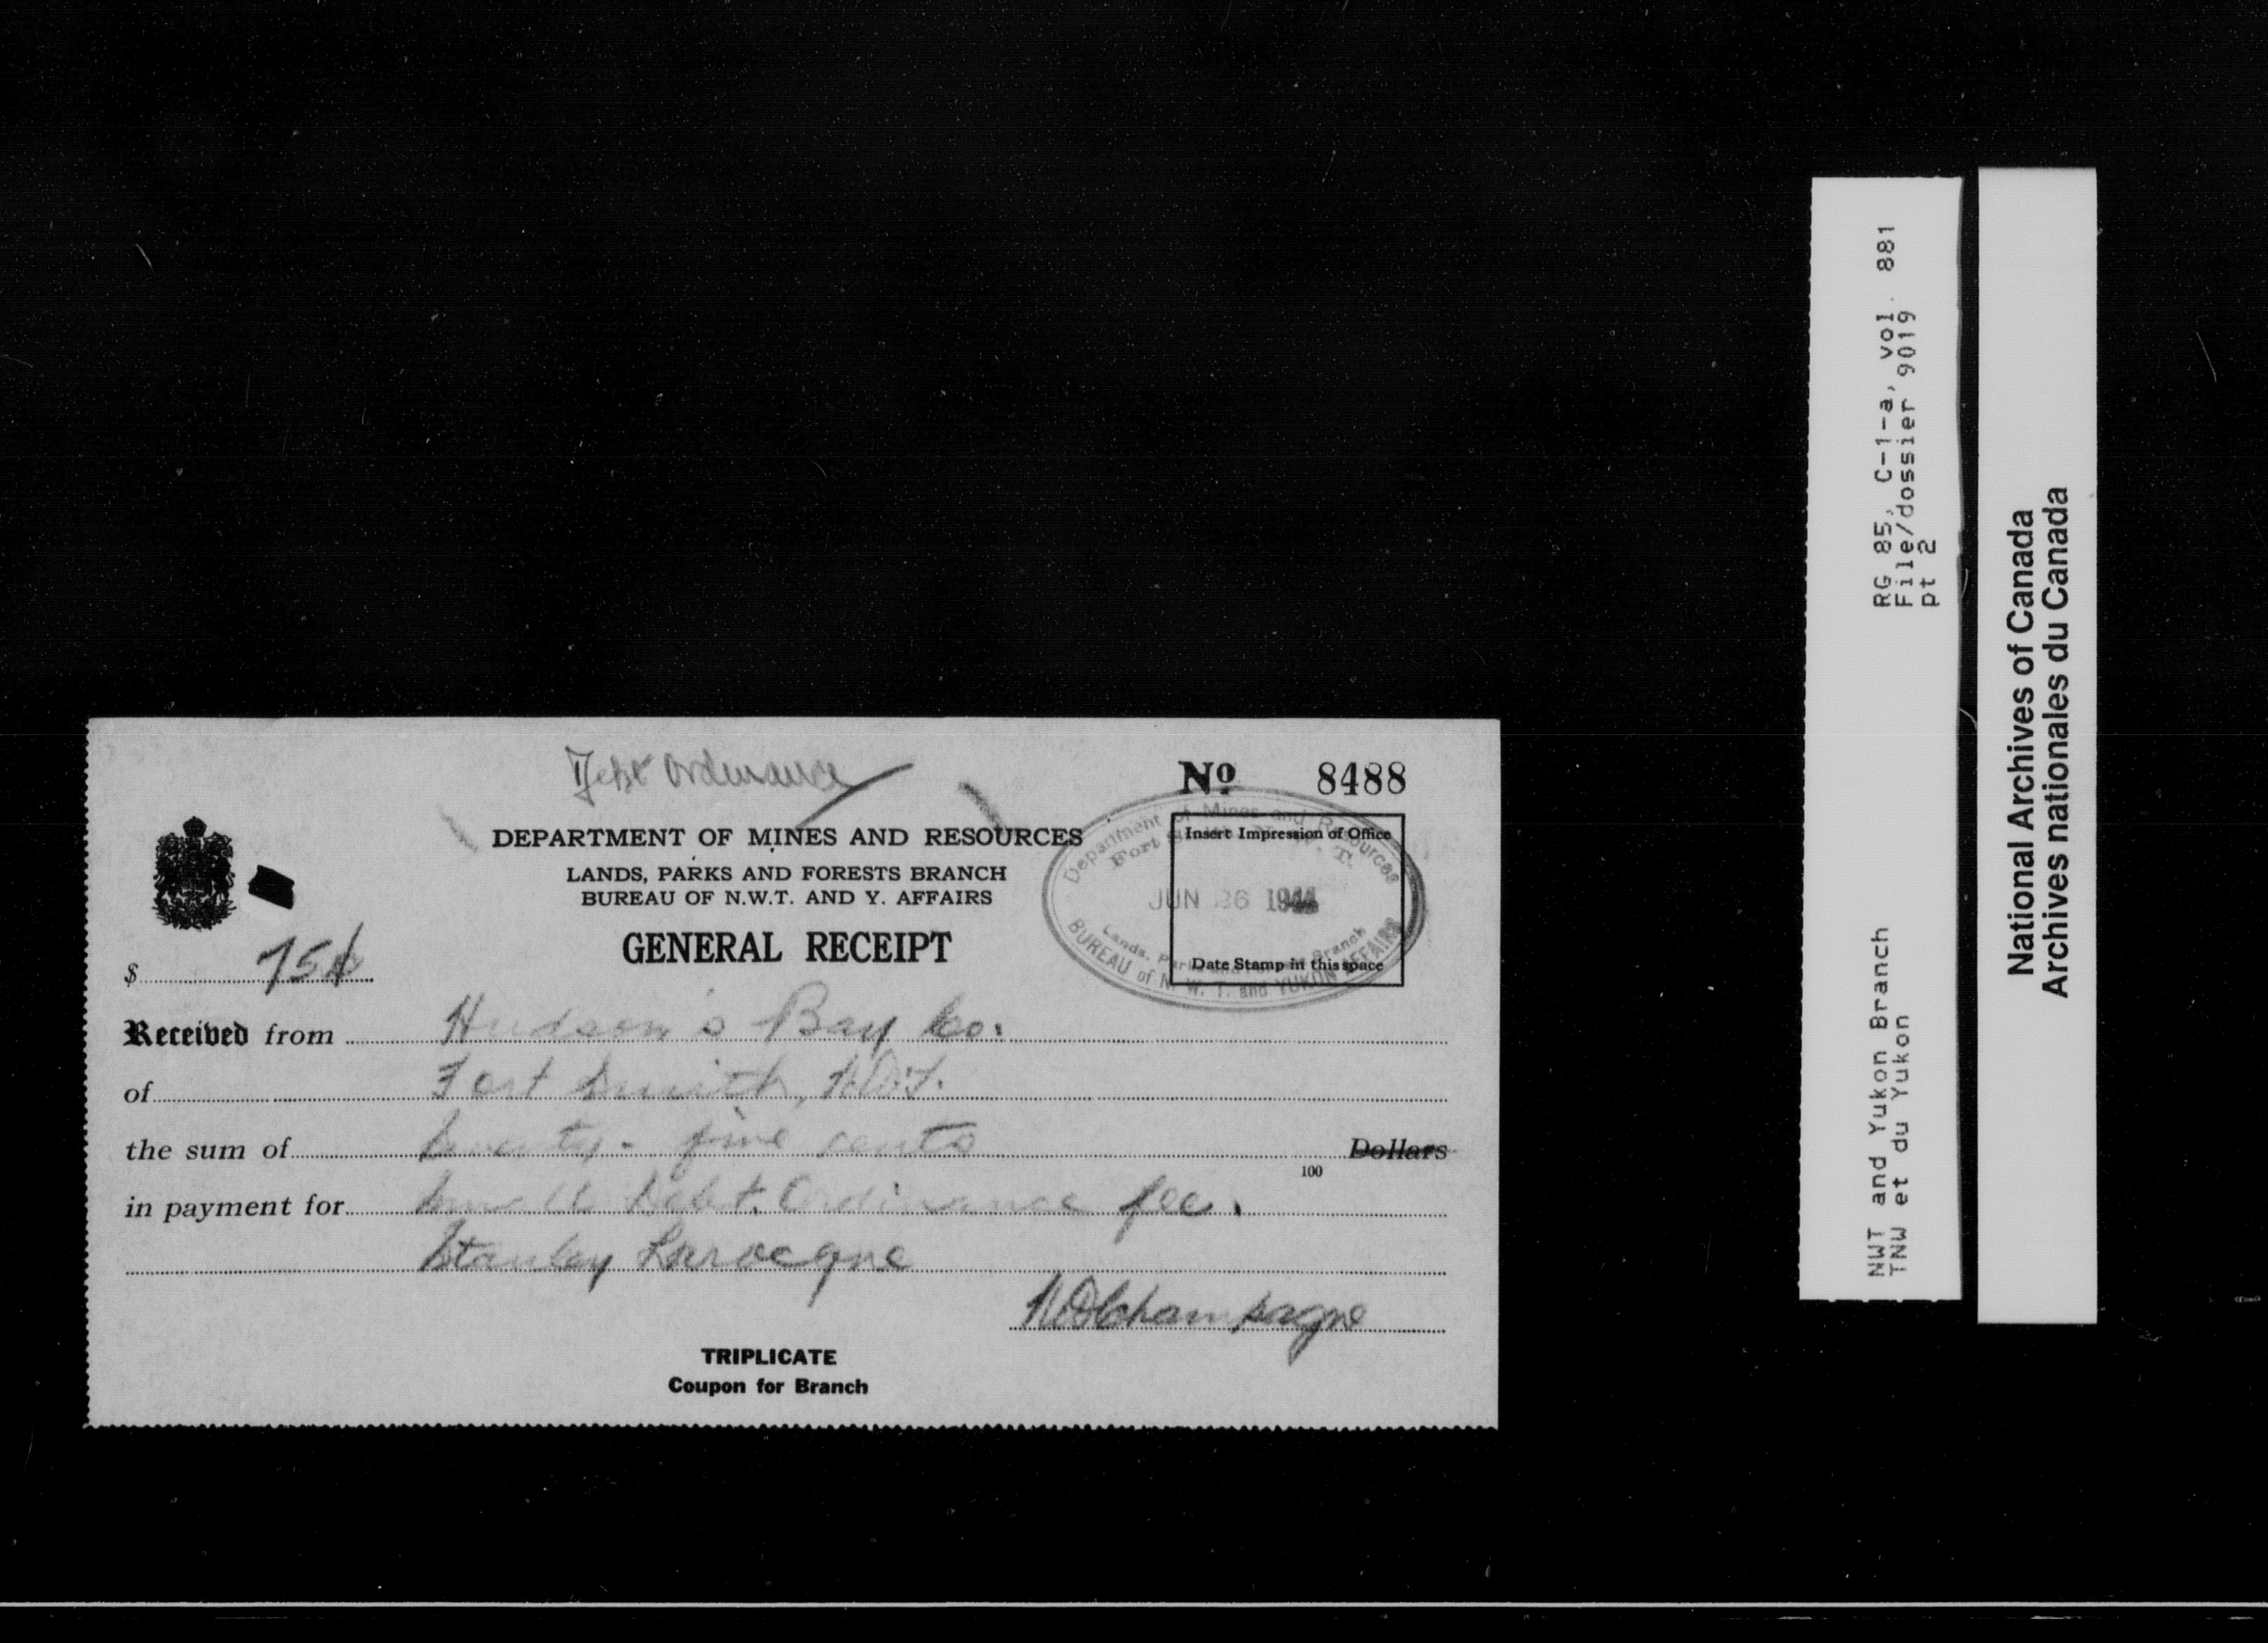 Debt Ordinance
No 8488
DEPARTMENT OF MINES AND RESOURCES
LANDS, PARKS AND FORESTS BRANCH
BUREAU OF N.W.T. AND Y. AFFAIRS
GENERAL RECEIPT
Insert Impression of Office
Date Stamp in this space
Department of Mines and Resources
Fort Smith, N. W. T.
JUN 26 1944
Lands, Parks and Forests Branch
BUREAU of N. W. T. and YUKON AFFAIRS
$ 75¢
Received from Hudson's Bay Co.
of Fort Smith, N.W.T.
the sum of Seventy - five cents Dollars
100
in payment for Small Debt. Ordinance fee.
Stanley Larocque
Champagne
TRIPLICATE
Coupon for Branch
RG 85, C-1-a, vol. 881
File/dossier 9019
pt 2
NWT and Yukon Branch
TNW et du Yukon
National Archives of Canada
Archives nationales du Canada